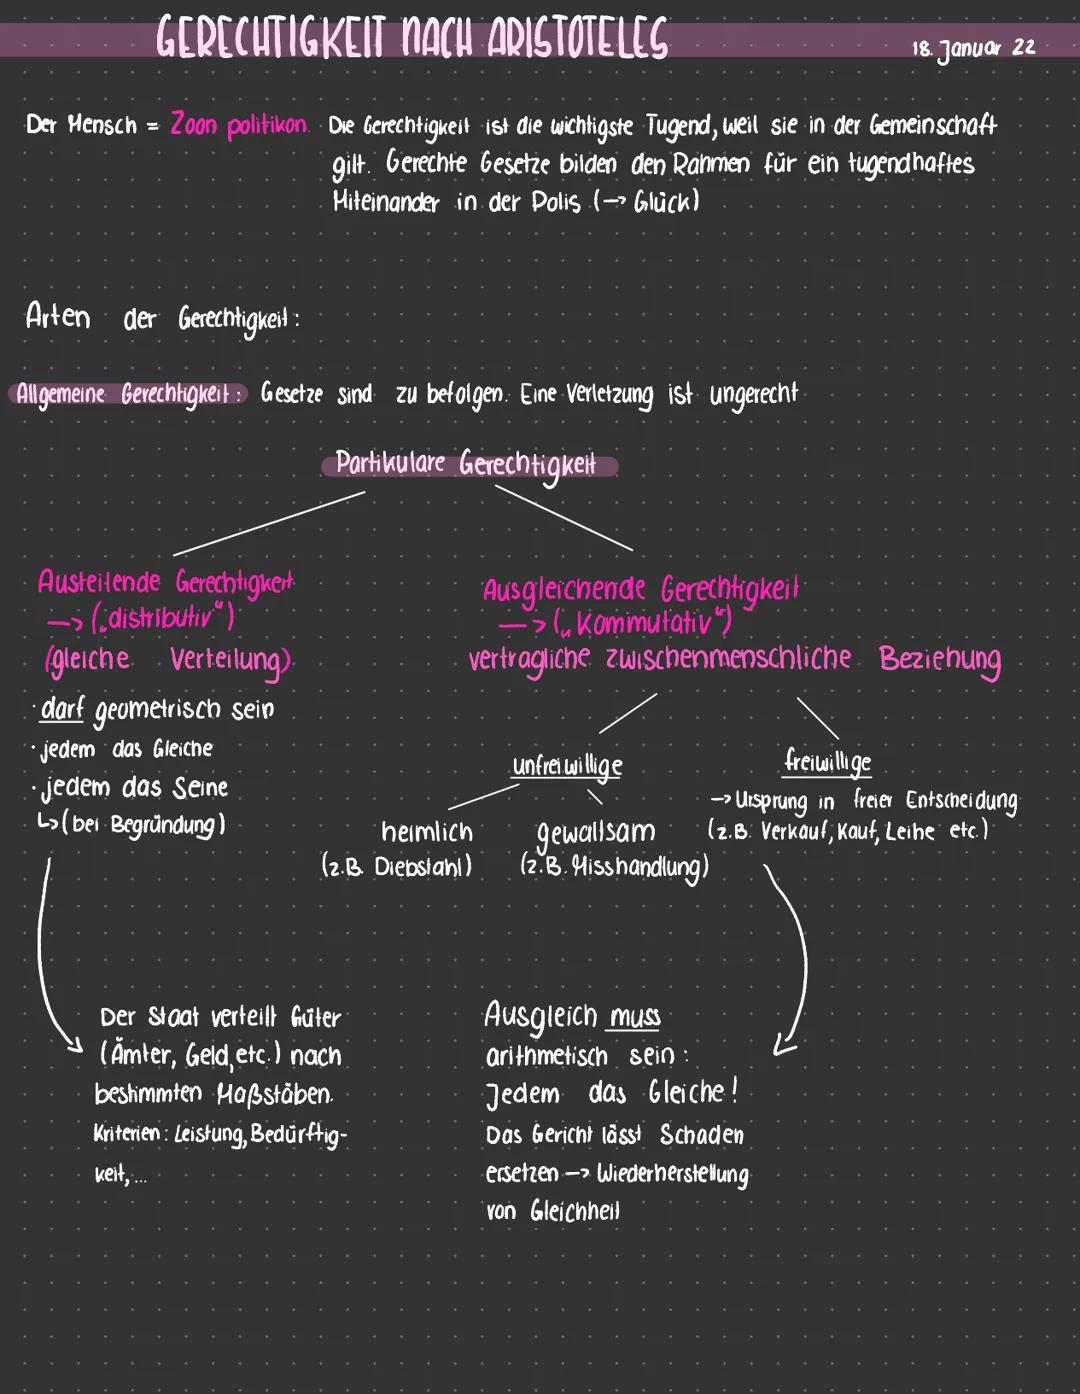 GERECHTIGKEIT NACH ARISTOTELES
18. Januar 22
Der Mensch = Zoon politikon. Die Gerechtigkeit ist die wichtigste Tugend, weil sie in der Gemeinschaft
gilt. Gerechte Gesetze bilden den Rahmen für ein tugendhaftes
Miteinander in der Polis (→ Glück)
Arten der Gerechtigkeit:
Allgemeine Gerechtigkeit: Gesetze sind zu befolgen. Eine Verletzung ist ungerecht
Partikulare Gerechtigkeit
Austeilende Gerechtigkeit
—> („distributiv“)
(gleiche Verteilung)
· darf geometrisch sein
· jedem das Gleiche
· jedem das Seine
↳ (bei Begründung)
Der Staat verteilt Güter
(Ämter, Geld, etc.) nach
bestimmten Maßstäben.
Kriterien: Leistung, Bedürftig-
keit,...
Ausgleichende Gerechtigkeit
—> („Kommutativ“)
vertragliche zwischenmenschliche Beziehung
unfreiwillige
heimlich
(z.B. Diebstahl)
gewaltsam
(z.B. Misshandlung)
freiwillige
→ Ursprung in freier Entscheidung
(z.B. Verkauf, Kauf, Leihe etc.)
Ausgleich muss
arithmetisch sein:
Jedem das Gleiche!
Das Gericht lässt Schaden
ersetzen —> Wiederherstellung
von Gleichheit